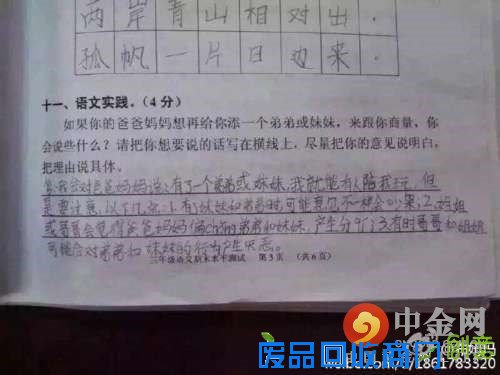 两岸青山相对出.
孤帆一片日边来.
十一、语文实践。(4分)
如果你的爸爸妈妈想再给你添一个弟弟或妹妹,来跟你商量,你
会说些什么?请把你想要说的话写在横线上,尽量把你的意见说明白,
把理由说具体。
我会对爸爸妈妈说:有了一个弟弟或妹妹,我就能有人陪我玩,但
是要注意以下几点:1.有了妹妹和弟弟时可能喜爱不一样会吵架;2.姐姐
或哥哥会觉得爸爸妈妈偏心的弟弟和妹妹,产生分歧;3.有时哥哥和姐姐
可能会对弟弟和妹妹的行为产生厌恶。
三年级语文期末水平测试 第3页 (共6页)
中金网
废品回收部门
weibo.com/u/1861783320